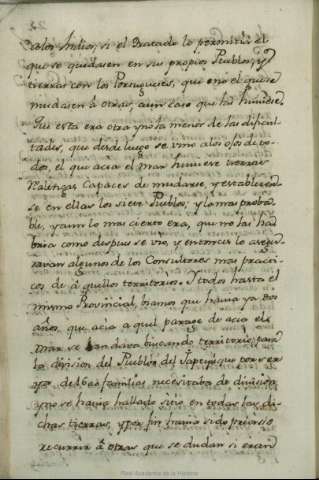 a los Indios, si el Tratado lo permitia el
que se quedasen en sus propios Pueblos, y
tierras con los Portugueses, que en el que se
mudasen a otras, aun caso que las hubiese.
Que esta era otra y no la menor de las dificul-
tades, que desde luego se vino a los ojos de to-
dos, el que acia el mar huviese tierras
realengas capaces de mudarse, y establecer
se en ellas los siete Pueblos, y lo mas proba
ble, y aun lo mas cierto era, que no las ha
bria como despues se vio, y entonces lo asegu
ravan algunos de los Consultores mas practi
cos de aquellos territorios. Y todos hasta el
mismo Provincial, biamos que havia ya dos
años, que acia aquel parage de acia el
mar se andava buscando territorio para
la division del Pueblo del Yapeyu que por ser
ya de familias necesitaba de division
y no se havia hallado sitio en todas las di
chas tierras, y por fin havia sido preciso
recurrir a otras que se dudan si eran
Real Academia de la Historia